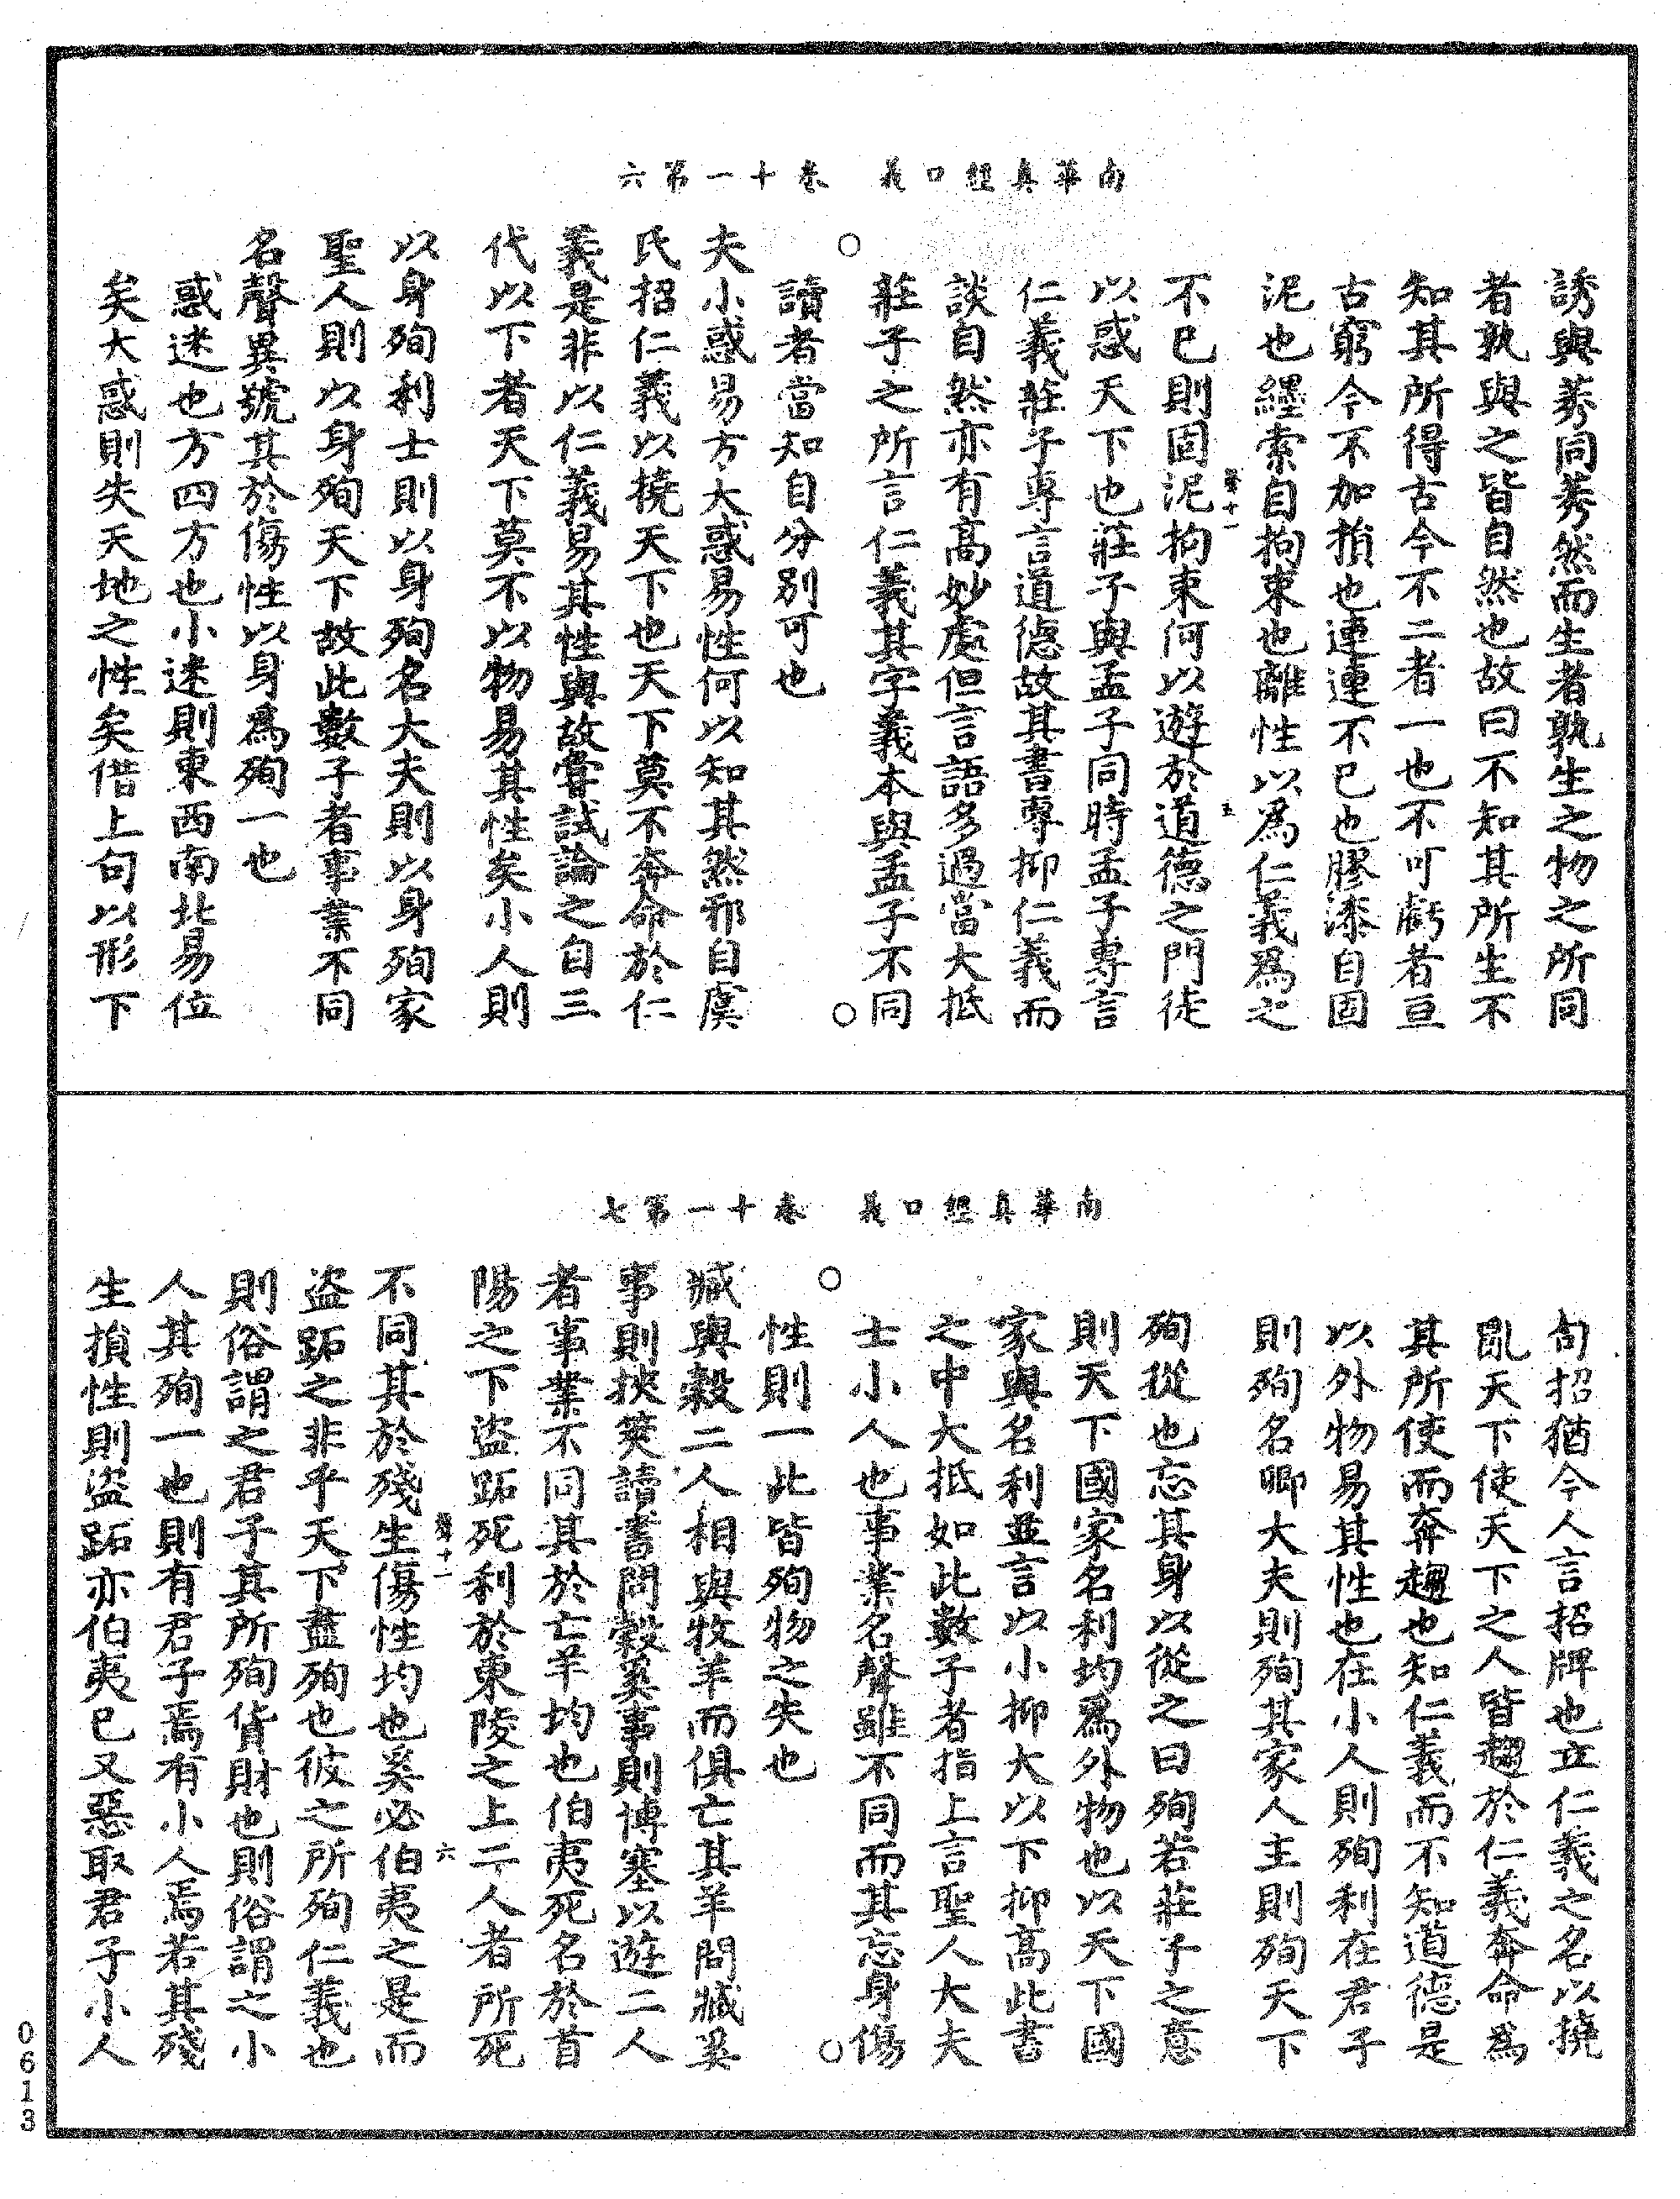 南華真經口義　卷十一第六
誘與莠同莠然而生者孰生之物之所同
者孰與之皆自然也故曰不知其所生不
知其所得古今不二者一也不可虧者亘
古窮今不加損也連連不已也膠漆自固
泥也纆索自拘束也離性以為仁義為之
不已則固泥拘束何以遊於道德之門徒
以惑天下也莊子與孟子同時孟子專言
仁義莊子專言道德故其書專抑仁義而
談自然亦有高妙處但言語多過當大抵
莊子之所言仁義其字義本與孟子不同
讀者當知自分別可也
夫小惑易方大惑易性何以知其然邪自虞
氏招仁義以撓天下也天下莫不奔命於仁
義是非以仁義易其性與故嘗試論之自三
代以下者天下莫不以物易其性矣小人則
以身殉利士則以身殉名大夫則以身殉家
聖人則以身殉天下故此數子者事業不同
名聲異號其於傷性以身為殉一也
惑迷也方四方也小迷則東西南北易位
矣大惑則失天地之性矣借上句以形下
南華真經口義　卷十一第七
句招猶今人言招牌也立仁義之名以撓
亂天下使天下之人皆趨於仁義奔命為
其所使而奔趨也知仁義而不知道德是
以外物易其性也在小人則殉利在君子
則殉名卿大夫則殉其家人主則殉天下
殉從也忘其身以從之曰殉若莊子之意
則天下國家名利均為外物也以天下國
家與名利並言以小抑大以下抑高此書
之中大抵如此數子者指上言聖人大夫
士小人也事業名聲雖不同而其忘身傷
性則一此皆殉物之失也
臧與穀二人相與牧羊而俱亡其羊問臧奚
事則挾筴讀書問穀奚事則博塞以遊二人
者事業不同其於亡羊均也伯夷死名於首
陽之下盜跖死利於東陵之上二人者所死
不同其於殘生傷性均也奚必伯夷之是而
盜跖之非乎天下盡殉也彼之所殉仁義也
則俗謂之君子其所殉貨財也則俗謂之小
人其殉一也則有君子焉有小人焉若其殘
生損性則盜跖亦伯夷已又惡取君子小人
0613